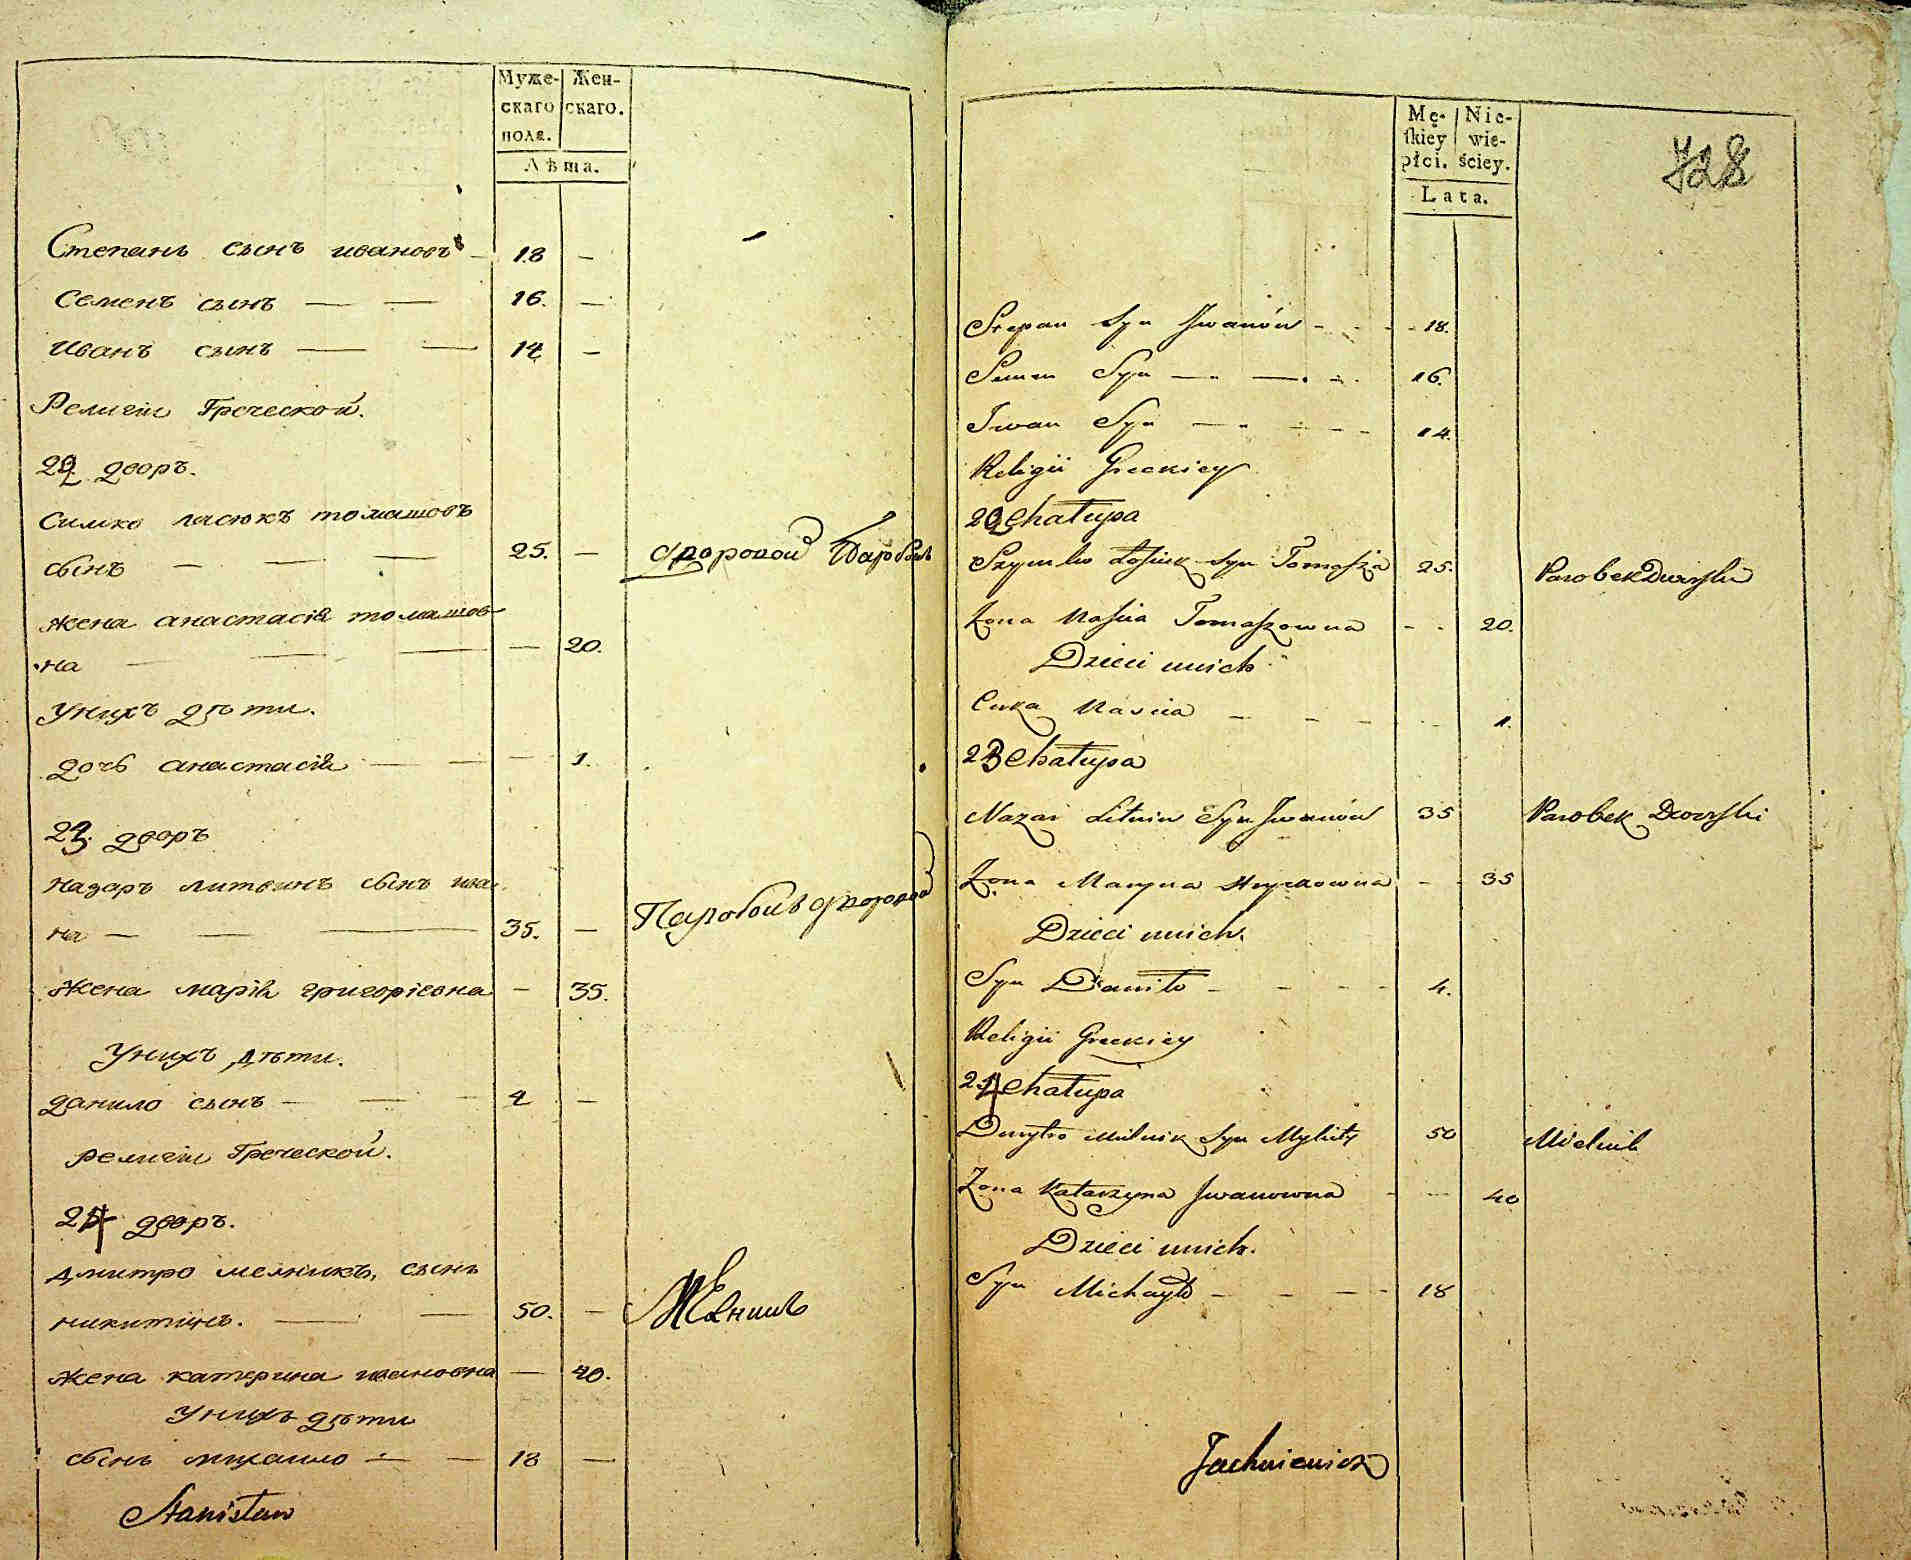 Муже-
скаго
пола.
Жен-
скаго.
Лѣта.
Степанъ сынъ ивановъ — 18 —
Семенъ сынъ — — 16. —
Иванъ сынъ — — 14 —
Религіи Греческой.
22 дворъ.
Симко ласюкъ томашовъ
сынъ — — — 25. — дворовой Паробокъ
жена анастасія томашов-
на — — — — 20.
Унихъ дѣти.
дочь анастасія — — — 1.
23. дворъ
назаръ литвинъ сынъ ива-
на — — — 35. — Паробокъ дворовой
жена марія григоріевна — 35.
Унихъ дѣти.
данило сынъ — — — 4 —
религіи Греческой.
24 дворъ.
дмитро мелникъ, сынъ
никитинъ. — — 50. — Мелникъ
жена катерина ивановна — 40.
Унихъ дѣти
сынъ михаило — — 18 —
Stanisław
Mę-
skiey
płci.
Nie-
wie-
ściey.
Lata.
728
Stepan Syn Jwanów - - - 18.
Semen Syn — — - 16.
Jwan Syn — - - - 14.
Religii Greckiey
22 Chałupa
Szymko Łasiuk syn Tomasza 25. Parobek Dworski
Żona Nascia Tomaszowna - - 20.
Dzieci unich
Curka Nascia - - - - 1.
23 Chałupa
Nazar Litwin Syn Jwanów 35 Parobek Dworski
Żona Maryna Hrycaowna - - 35
Dzieci unich.
Syn Daniło - - - - 4.
Religii Greckiey
24 Chałupa
Dmytro Milnik Syn Mykity 50 Mielnik
Żona Katarzyna Jwanowna - - 40
Dzieci unich.
Syn Michayło - - - - 18
Jachniewicz